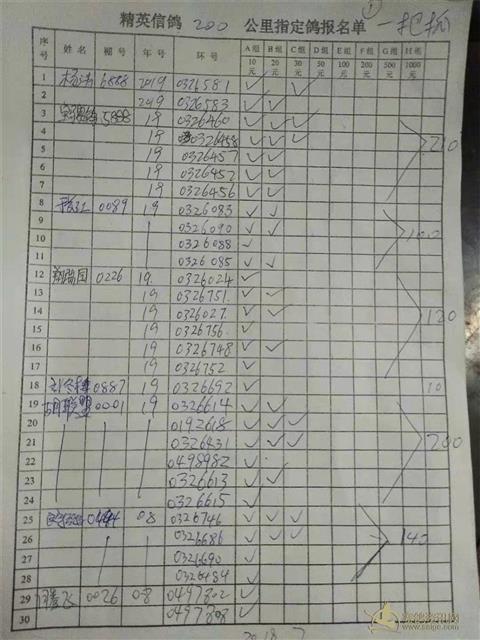 ①
精英信鸽 200 公里指定鸽报名单 一把抓
序号 姓名 棚号 年号 环号 A组10元 B组20元 C组30元 D组50元 E组100元 F组200元 G组500元 H组1000元
1 杨涛 6888 2019 0326581 ✓ ✓
2 2019 0326583 ✓ ✓
3 5888 19 0326460 ✓ ✓ ✓
4 19 0326458 ✓ ✓ ✓
5 19 0326457 ✓ ✓
6 19 0326452 ✓ ✓
7 19 0326456 ✓ ✓
210
8 0089 19 0326083 ✓ ✓
9 0326090 ✓ ✓
10 0326088 ✓
11 0326085 ✓ ✓
100
12 0226 19. 0326024 ✓
13 19 0326751. ✓ ✓
14 19 0326027. ✓ ✓
15 19 0326756. ✓
16 19 0326748 ✓ ✓
17 19 0326752 ✓
120
18 0887 19 0326692 ✓ 10
19 胡联盟 0001 19 0326614 ✓ ✓
20 0192618 ✓ ✓ ✓
21 0326431 ✓ ✓ ✓
22 0498982 ✓
23 0326613 ✓ ✓
24 0326615 ✓
200
25 08 0326746 ✓ ✓ ✓
26 0326686 ✓ ✓ ✓
27 0326690 ✓
28 0326484 ✓
140
29 飞 0026 08 0497802 ✓
30 0497808 ✓
2018 7
www.saige.com